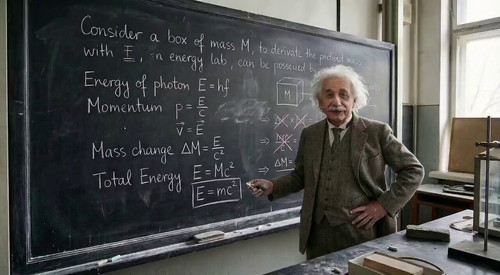 Consider a box of mass M, to derive the
with E, in energy lab, can be possessed
Energy of photon E = hf
M
Momentum p = E/c
v⃗ = E⃗
Mass change ΔM = E/c²
⇒ ΔM =
Total Energy E = Mc²
E = mc²